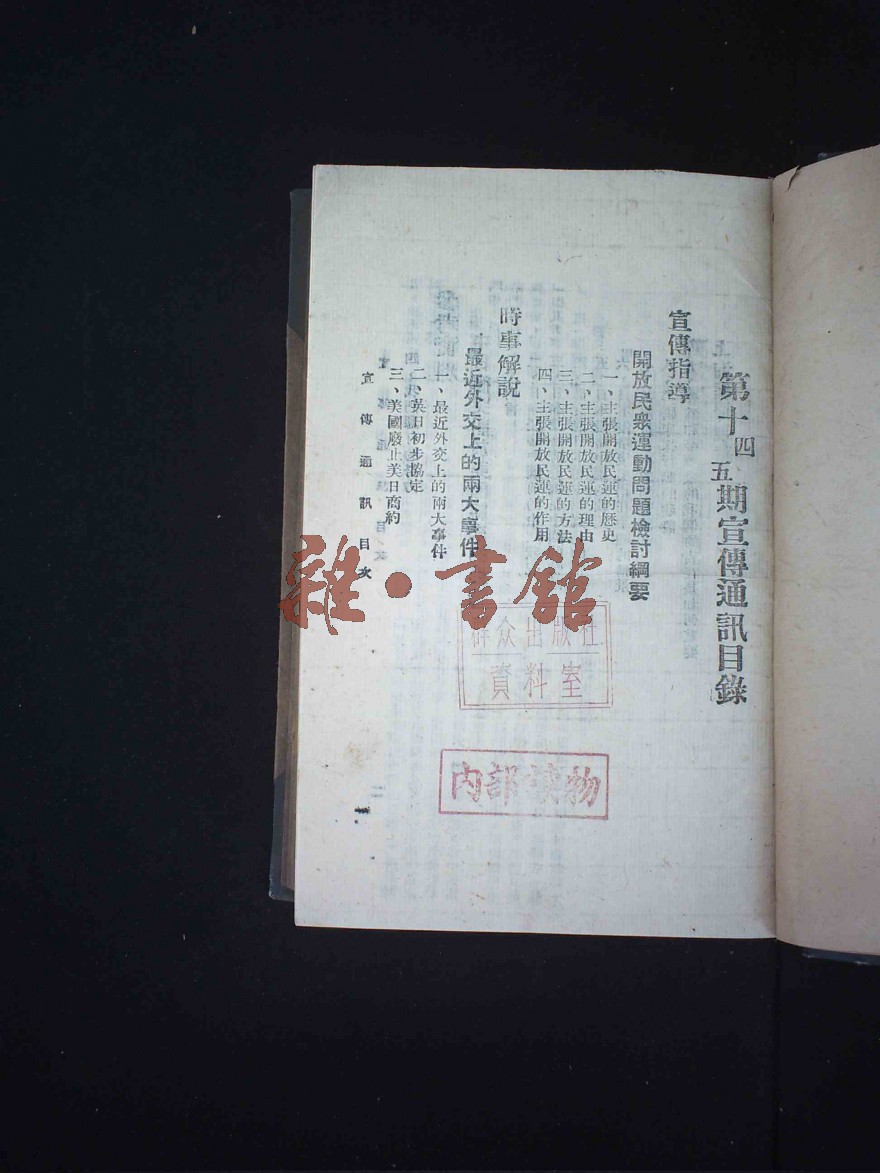 第十四五期宣傳通訊目錄
宣傳指導
開放民衆運動問題檢討綱要
一、主張開放民運的歷史
二、主張開放民運的理由
三、主張開放民運的方法
四、主張開放民運的作用
時事解說
最近外交上的兩大事件
一、最近外交上的兩大事件
二、英日初步協定
三、美國廢止美日商約
宣傳通訊目次
一
雜·書館
群众出版社
資料室
内部读物